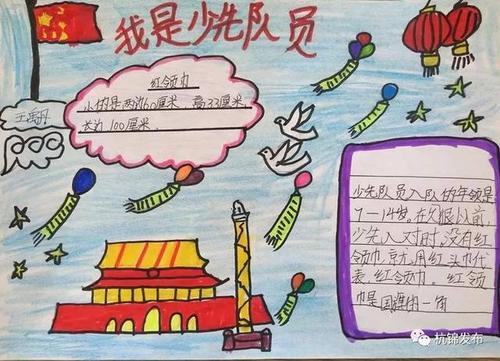 我是少先队员
红领巾
小的是两边60厘米,高33厘米,
长边100厘米.
少先队员入队的年领是
7—14岁.在久很以前,
少先入对时,没有红
领巾,京尤用红头巾代
表,红领巾.红领
巾是国旗的一角
杭锦发布